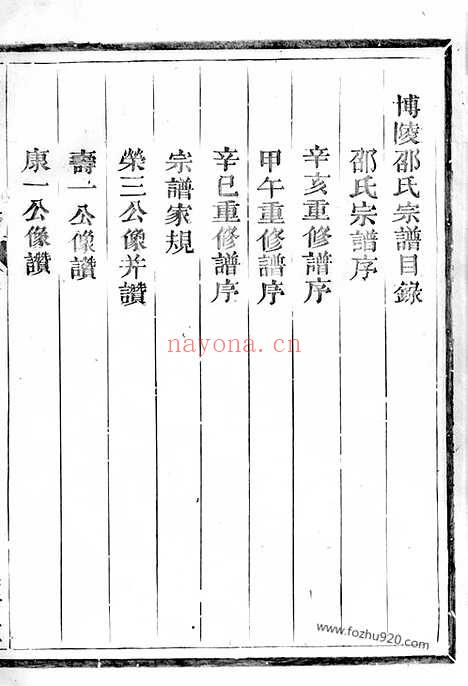 博陵邵氏宗譜目錄
邵氏宗譜序
辛亥重修譜序
甲午重修譜序
辛巳重修譜序
宗譜家規
榮三公像并讚
壽一公像讚
康一公像讚
nayona.cn
www.fozhu920.com